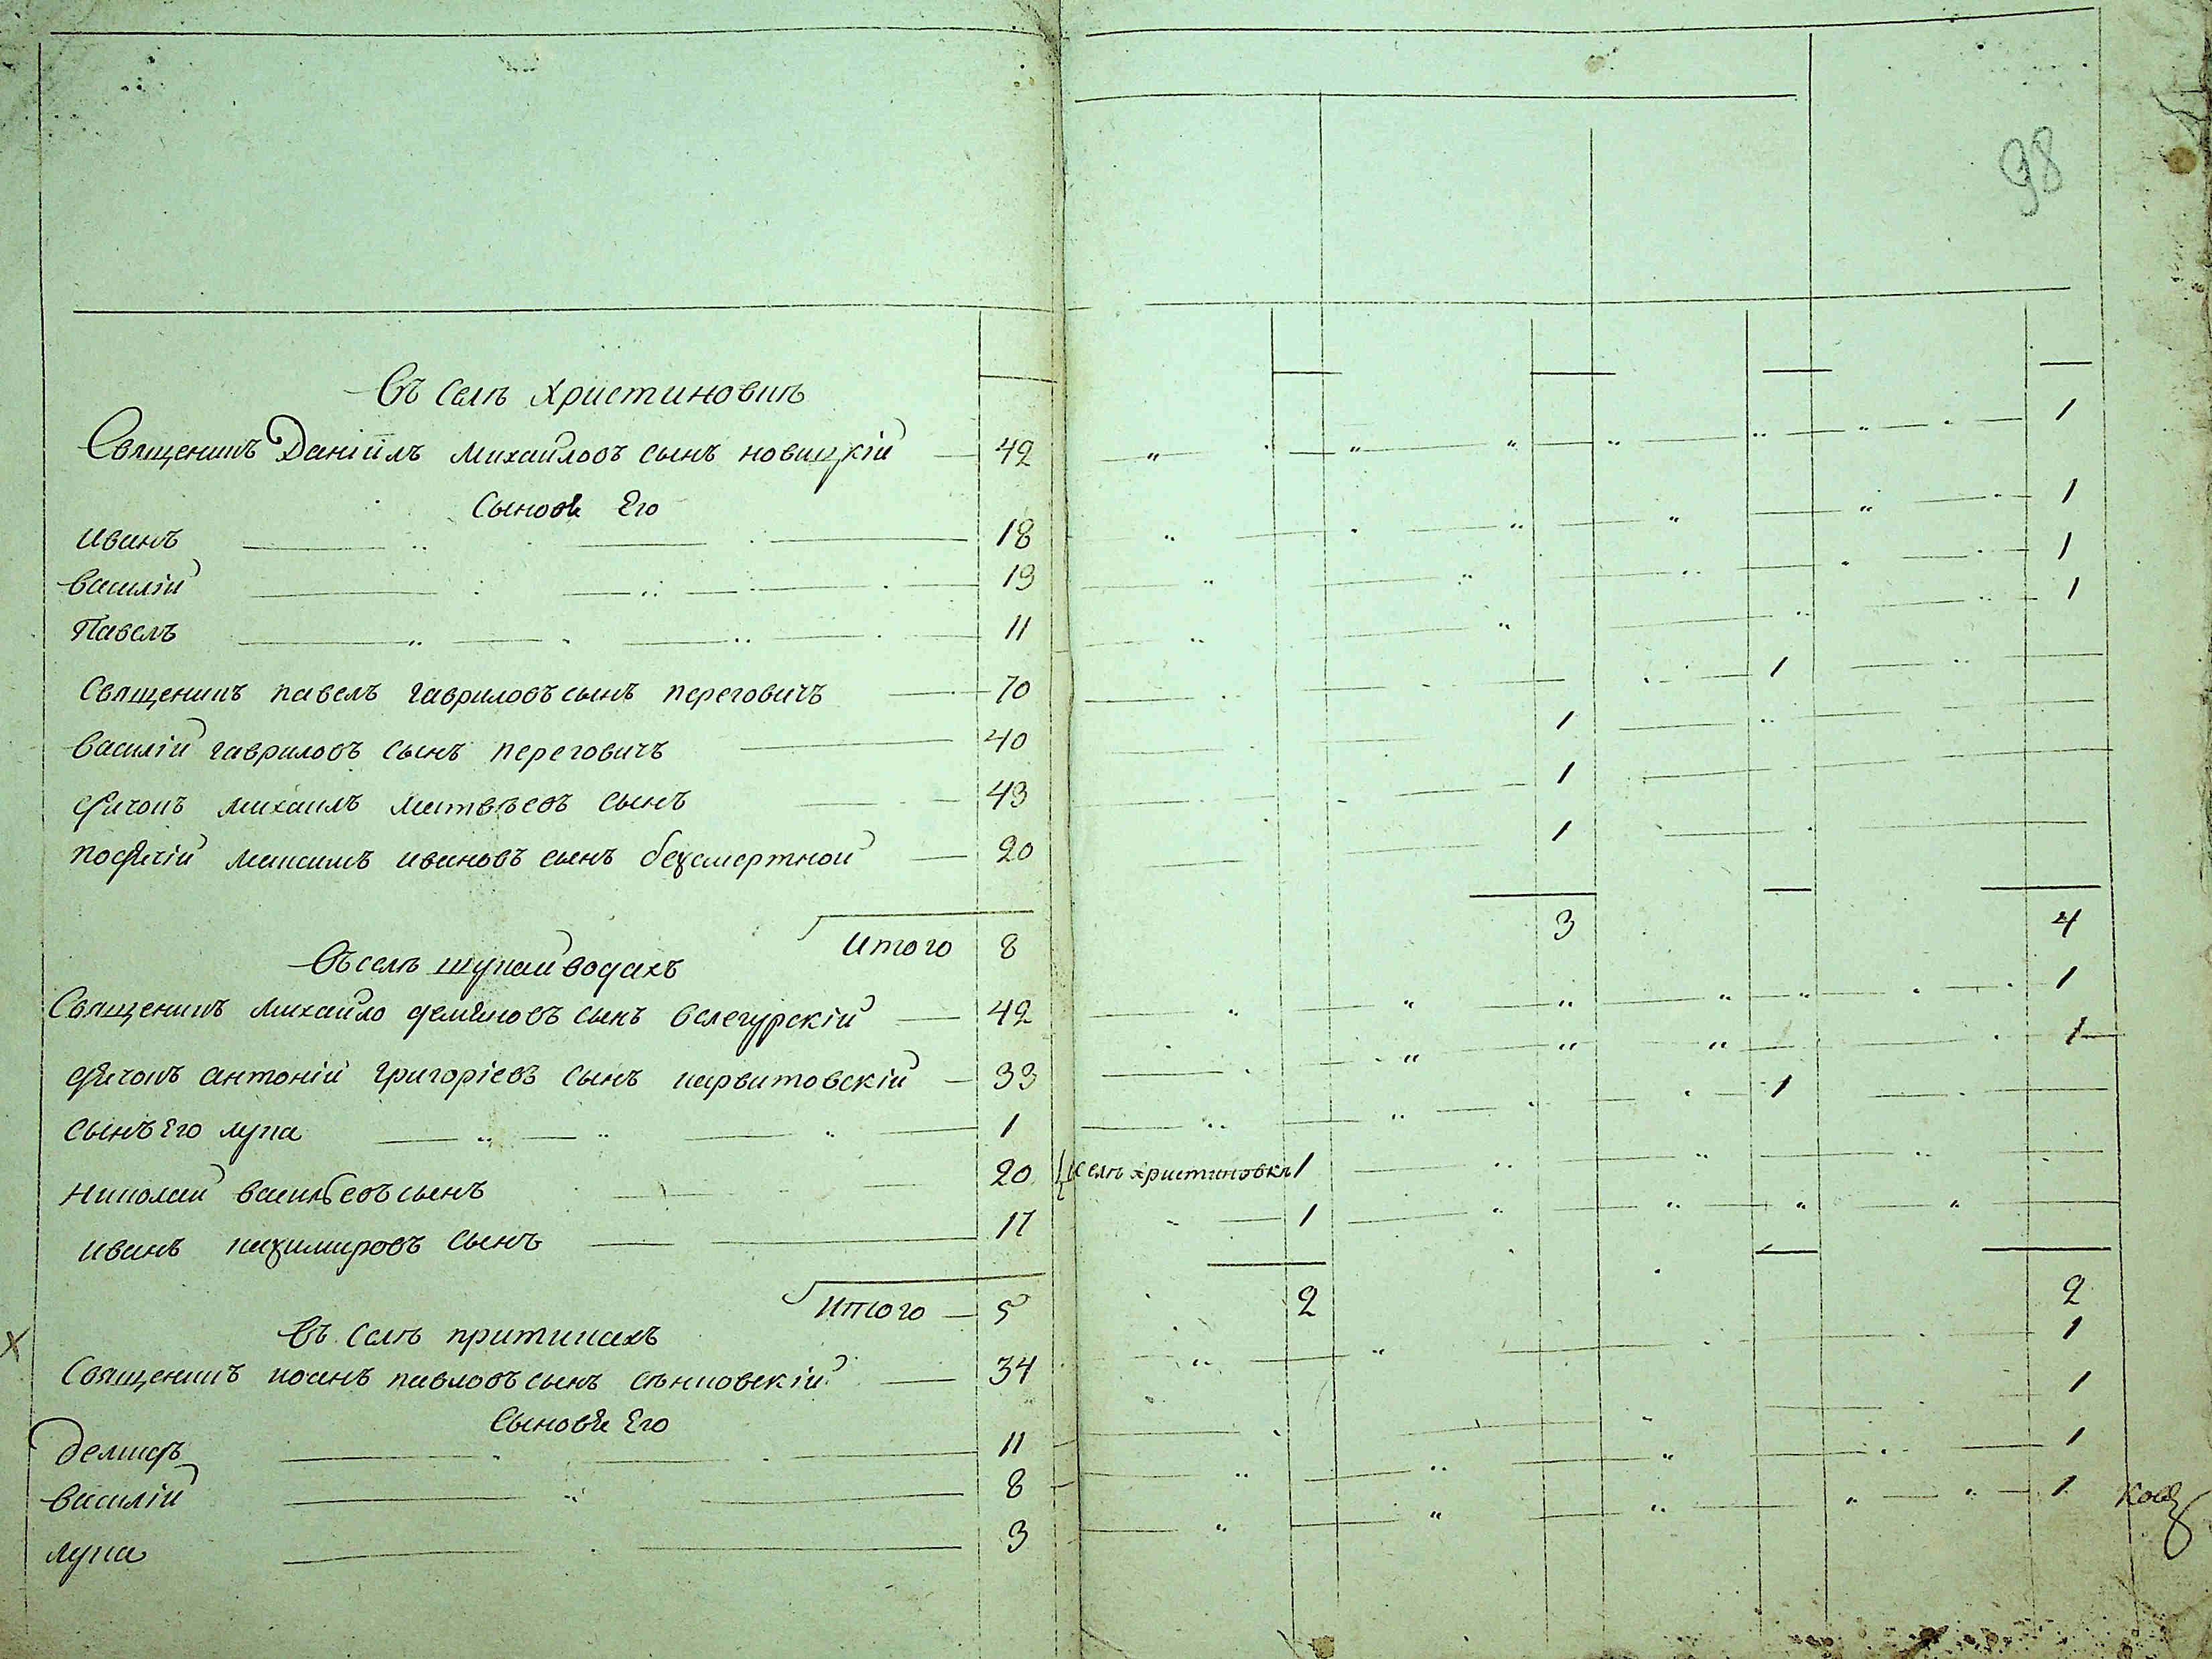 98
Въ селѣ христиновкѣ
Священикъ Даніилъ михайловъ сынъ новицкій 42 1
Сыновя Его
иванъ 18 1
василій 13 1
Павелъ 11 1
Священикъ павелъ гавриловъ сынъ переговичъ 70 1
василій гавриловъ сынъ переговичъ 40 1
дячокъ михаилъ матвѣевъ сынъ 43 1
подячій максимъ ивановъ сынъ безсмертной 20 1
Итого 8 3 4
Въ селѣ шукайводахъ
Священикъ михайло демяновъ сынъ велегурскій 42 1
дячокъ антоній григоріевъ сынъ карвитовскій 33 1
сынъ Его лука 1 1
николай васильевъ сынъ 20 селѣ христиновкѣ 1
иванъ казимировъ сынъ 17 1
Итого 5 2 2
х
Въ селѣ притикахъ
Священикъ иоанъ павловъ сынъ сѣнковскій 34 1
Сыновя Его
Демидъ 11 1
василій 8 1
лука 3 1